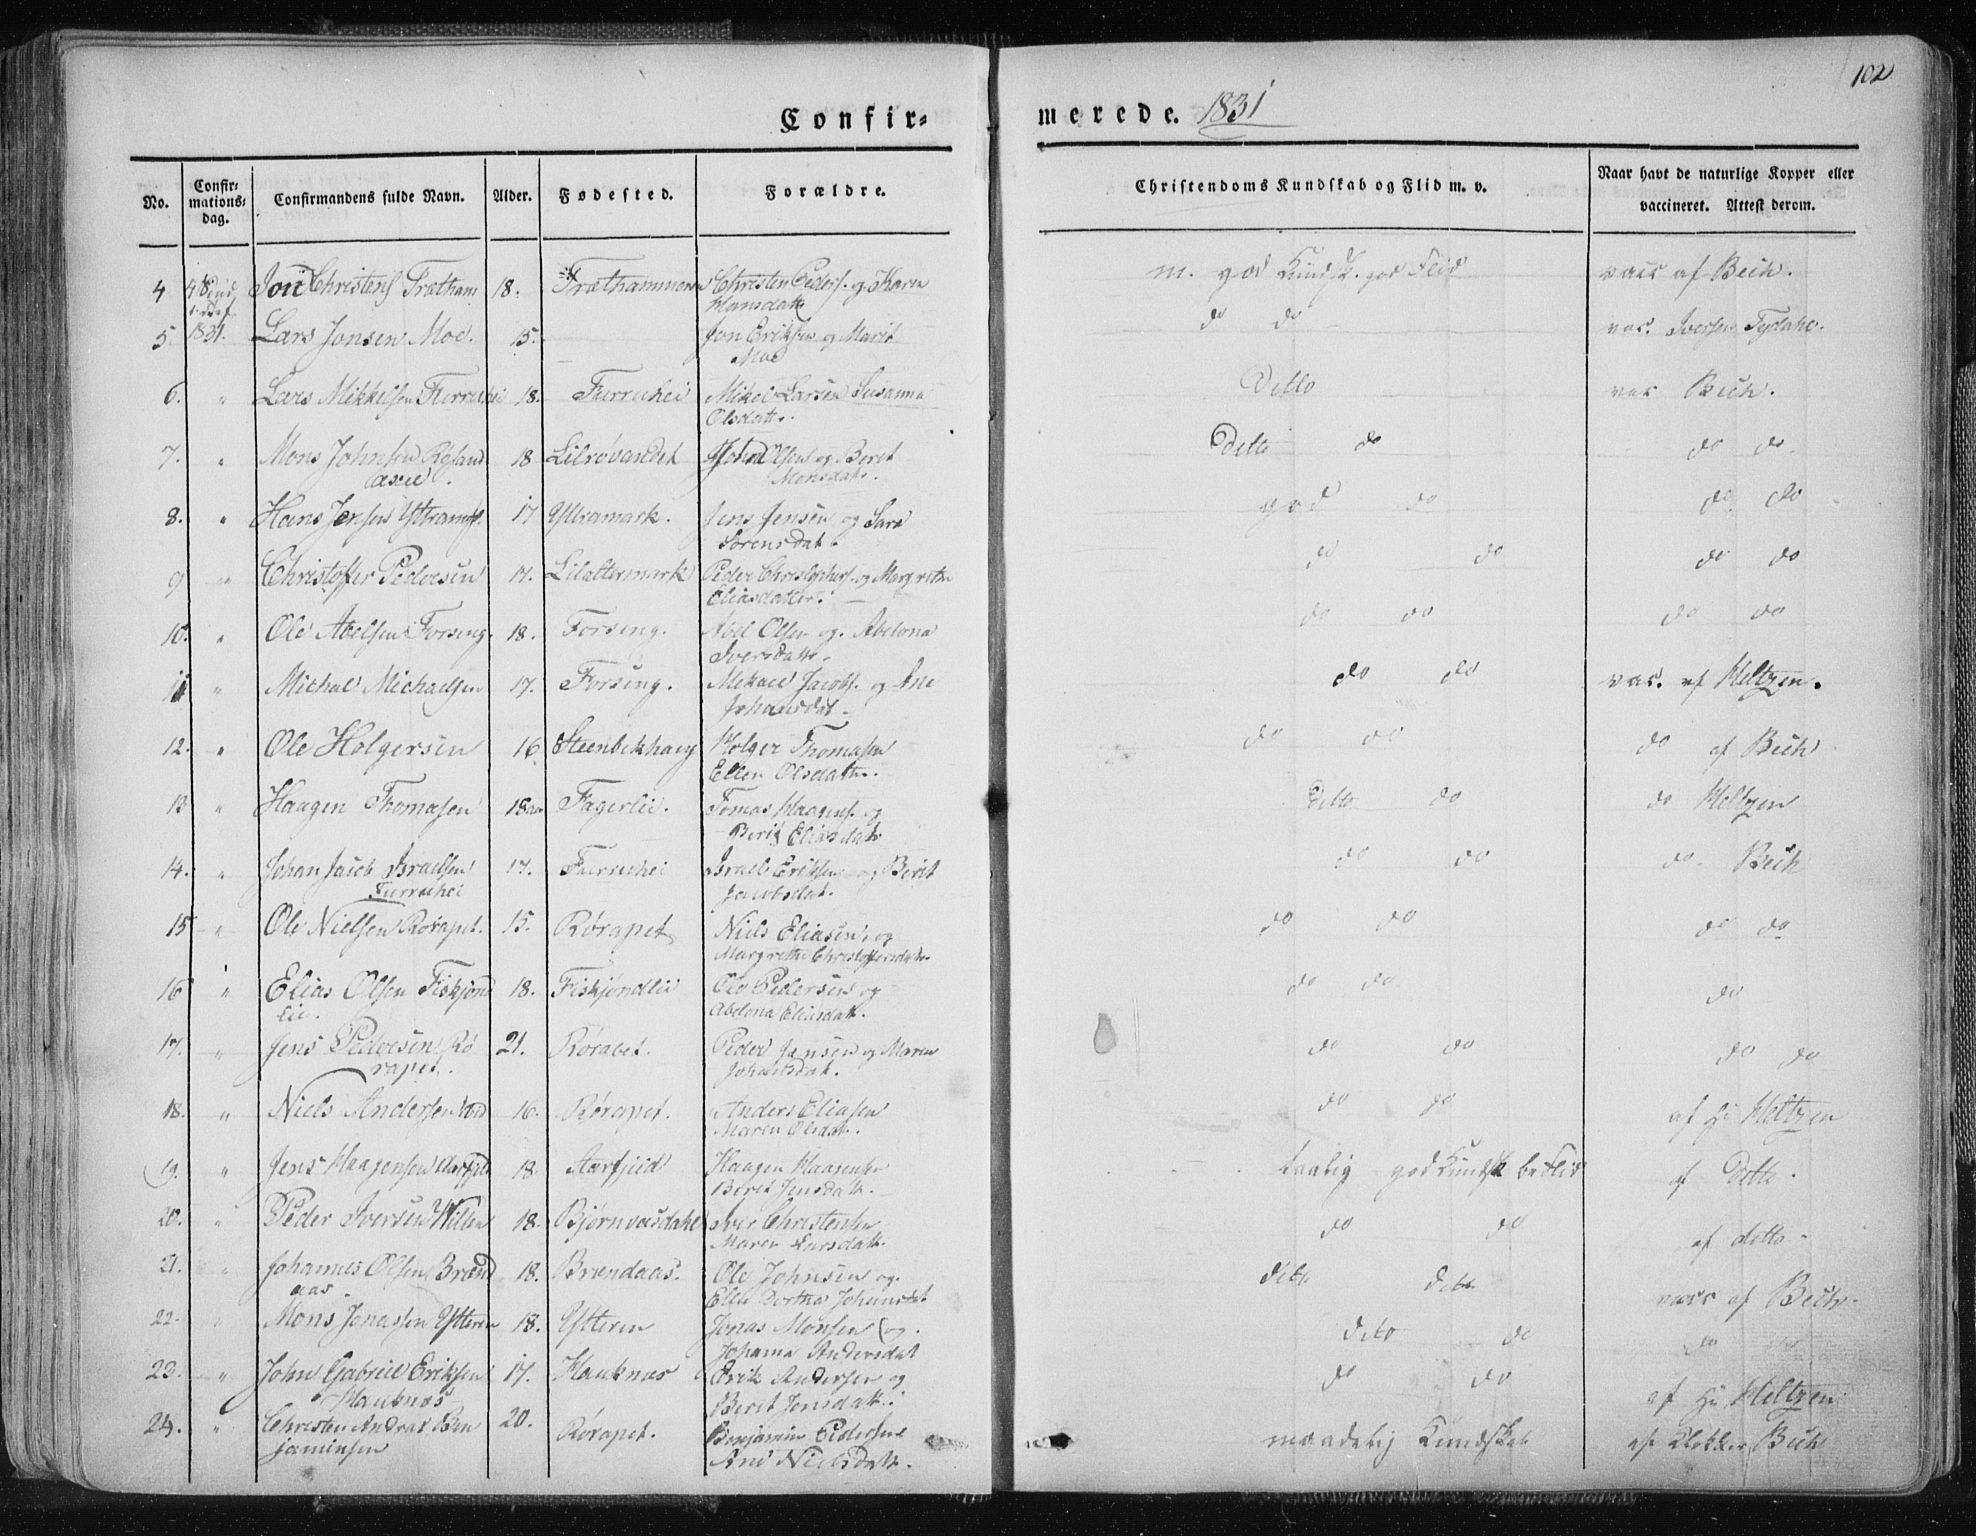 102
Confir=
merede. 1831
No.
Confir=
mations=
dag.
Confirmandens fulde Navn.
Alder.
Fødested.
Forældre.
Christendoms Kundskab og Flid m. v.
Naar havt de naturlige Kopper eller
vaccineret. Attest derom.
4 18. Christens Trætham 18. Træthammeren Christen Peders. og Karen m. god Kundsk. god Flid vacc af Bech.
Hansdatt
5. 1831. Lars Jonsen Moe. 15. Jon Eriksen og Marit do do vac. Iversen Tydahl.
Moe
6. " Lars Mikkelsen Furruhei 18. Furruhei Mikel Larsen Susanna Ditto vac Bech.
Olsdatt.
7. " Mons Johnsen 18 Lilrøvandet John Olsen og Berit Ditto do do do
Monsdatt.
8. " Hans Jensen Yttramk. 17 Yttramark. Jens Jensen og Sara god do do do
Sørensdat.
9 " Christoffer Pedersen 17. Lilaltermark Peder Christophers. og Margrethe do do do do
Eliasdatter.
10. " Ole Abelsen Forsing. 18. Forsing. Abel Olsen og Abelona do do do do
Iversdatt.
11 " Michal Michaelsen 17. Forsing. Mikael Jacobs. og Ane do do vac. af Heltzen.
Johansdat.
12. " Ole Holgersen 16 Steenbekhaug Holger Thomasen do do do af Bech
Ellen Olsdatter.
13 " Haagen Thomasen 18 Fagerlie. Tomas Haagens. og Ditto do do Heltzen
Berit Eliasdatt
14. " Johan Jacob Israelsen 17. Furruhei Israel Eriksen og Berit do do do Bech
Furruhei Jacobsdat.
15 " Ole Nielsen Rørapet. 15. Rørapet Niels Eliasen og do do do do
Margrethe Christoffersdatt
16 " Elias Olsen Fiskjønd 18. Fiskjøndlie Ole Pedersen og do do do
lie. Abelona Eliasdatt.
17. " Jens Pedersen Rø 21. Rørabet. Peder Jansen og Maren do do do do
rapet. Johansdat.
18. " Niels Andersen 16. Rørapet. Anders Eliasen do do af Hr Heltzen
Maren Olsdat.
19. " Jens Haagensen Aarfjeld 18. Aarfjeld Haagen Haagensen taalig god Kundsk Flid af Ditto.
Berit Jensdatt.
20. " Peder Iversen Villen 18. Bjørnvasdahl Iver Christensen do do af ditto
Maren Larsdatt.
21. " Johannes Olsen Brænd 18. Brændaas. Ole Johnsen og ditto ditto vacc af Bech
aas. Ellen Dorthea Johansdat
22. " Mons Jonassen Ytteren 18. Ytteren Jonas Monsen og dito do do
Johanna Andersdat
23. " John Gabriel Eriksen 17. Hauknæs Erik Andersen og do do af Hr Heltzen
Hauknæs Berit Jonsdatt.
24. " Christen Andreas Ben 20. Rørapet. Benjamin Pedersen maadelig Kundskab af Klokker Bech
jaminsen Ane Nielsdatt.